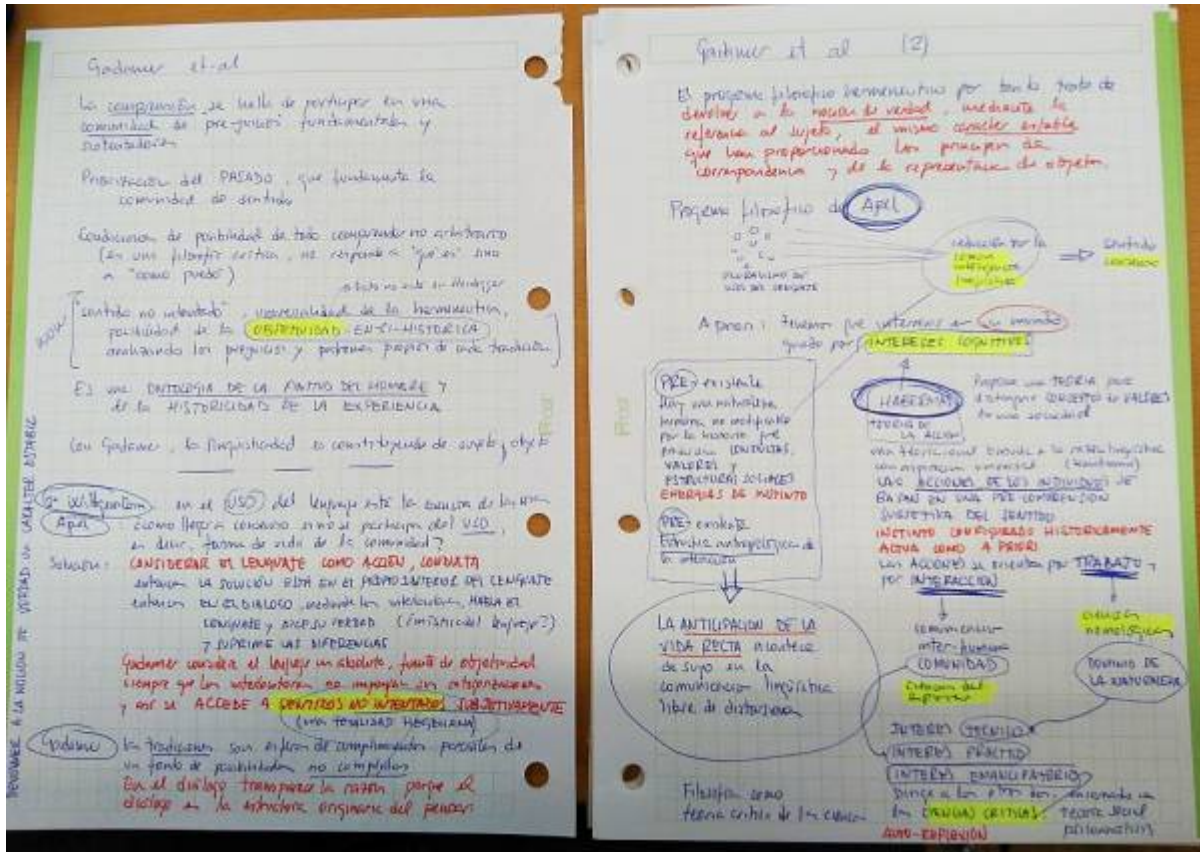 Gadamer et al
La comprensión se halla de participar en una
comunidad de pre-juicios fundamentados y
sustentadores
Priorización del PASADO, que fundamenta la
comunidad de sentido
Condiciones de posibilidad de todo comprender no arbitrario
(es una filosofía crítica, no responde a "qué es" sino
a "cómo puedo")
esto no está en Heidegger
"sentido no intentado", universalidad de la hermenéutica,
posibilidad de la OBJETIVIDAD EN-SÍ-HISTÓRICA
analizando los prejuicios y patrones propios de cada tradición
Es una ONTOLOGIA DE LA FINITUD DEL HOMBRE y
de la HISTORICIDAD DE LA EXPERIENCIA
Con Gadamer, la lingüisticidad es constituyente de sujeto y objeto
2º Wittgenstein
Apel
en el USO del lenguaje está la
como llegar a conocerlo si no se participa del USO,
es decir, forma de vida de la comunidad?
Solución: CONSIDERAR EL LENGUAJE COMO ACCIÓN, CONDUCTA
entonces LA SOLUCIÓN ESTÁ EN EL PROPIO INTERIOR DEL LENGUAJE
entonces EN EL DIALOGO, mediante los interlocutores, HABLA EL
LENGUAJE y DICE SU VERDAD
y SUPRIME LAS DIFERENCIAS
Gadamer considera el lenguaje un absoluto, fuente de objetividad
siempre que los interlocutores no impongan sus categorizaciones
y así se ACCEDE A SENTIDOS NO INTENTADOS SUBJETIVAMENTE
(una TOTALIDAD HEGELIANA)
Gadamer
las tradiciones son esferas de cumplimientos parciales de
un fondo de posibilidades no cumplidas
En el diálogo transparece la razón porque el
diálogo es la estructura originaria del pensar
DEVOLVER A LA NOCIÓN DE VERDAD UN CARÁCTER ESTABLE
Gadamer et al (2)
El programa filosófico hermenéutico por tanto trata de
devolver a la noción de verdad, mediante la
referencia al sujeto, el mismo carácter estable
que han proporcionado los principios de
correspondencia y de la representación de objetos.
Programa filosófico de Apel
PLURALISMO DE
USOS DEL LENGUAJE
reducción por la
común
inteligencia
lingüística
sentido
A priori: tenemos que internarse en un mundo
guiado por INTERESES COGNITIVOS
PRE-existente
Hay una naturaleza
humana no modificable
por la historia que
CONDUCTAS,
VALORES Y
ESTRUCTURAS SOCIALES
EMERGIDAS DE INSTINTO
PRE-
Estructura antropológica de
la interacción
LA ANTICIPACION DE LA
VIDA RECTA acontece
de suyo en la
comunicación lingüística
libre de distorsiones
Filosofía como
teoría crítica de las ciencias
HABERMAS
TEORIA DE
LA ACCION
Propone una TEORIA para
distinguir CONCEPTO de VALORES
de una sociedad
LAS ACCIONES DE LOS INDIVIDUOS SE
BASAN EN UNA PRE COMPRENSION
SUBJETIVA DEL SENTIDO
INSTINTO CONFIGURADO HISTORICAMENTE
ACTUA COMO A PRIORI
LAS ACCIONES se orientan por TRABAJO y
por INTERACCION
comunicación
inter-humana
COMUNIDAD
ciencias
nomológicas
DOMINIO DE
LA NATURALEZA
ciencias del
espíritu
INTERES TECNICO
INTERES PRACTICO
INTERES EMANCIPATORIO
dirige a los otros dos, encarnado en
las CIENCIAS CRITICAS: teoría social
psicoanálisis
AUTO-REFLEXIÓN